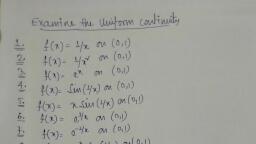 Examine the Uniform continuity
1. f(x) = 1/x on (0,1)
2. f(x) = 1/x² on (0,1)
3. f(x) = eˣ on (0,1)
4. f(x) = Sin(1/x) on (0,1)
5. f(x) = x Sin(1/x) on (0,1)
6. f(x) = e^1/x on (0,1)
7. f(x) = e^-1/x on (0,1)